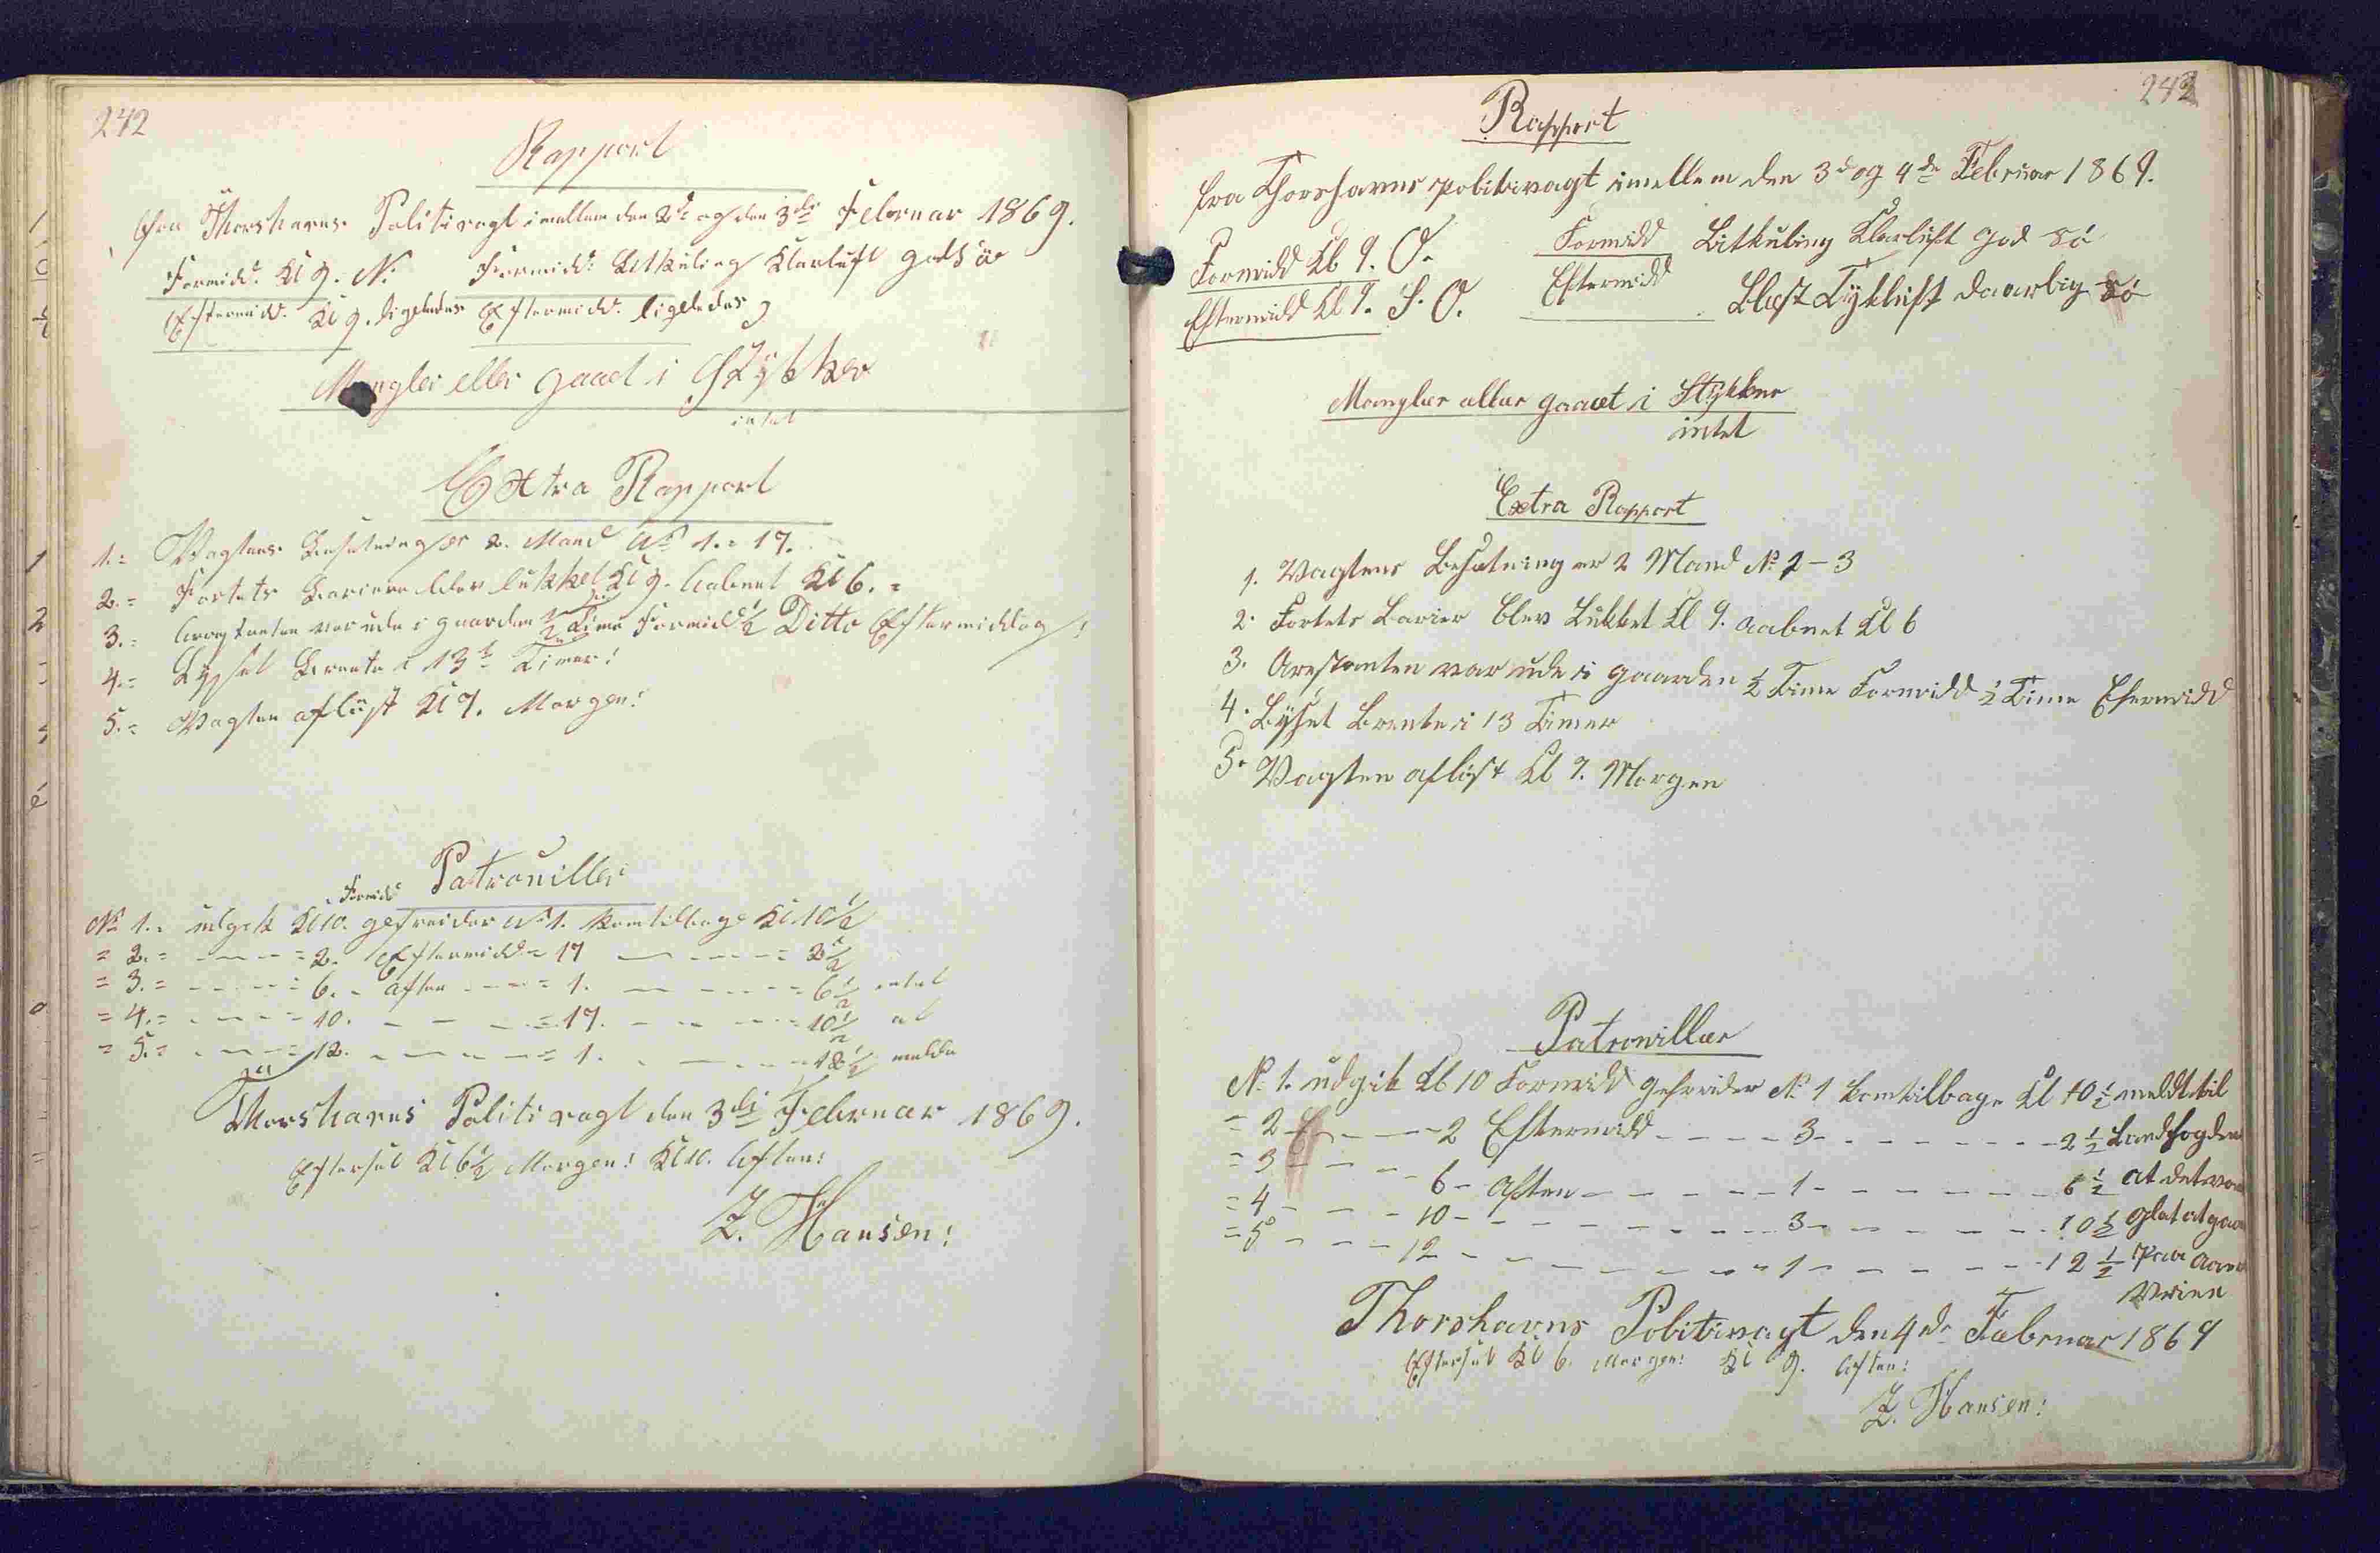 242
Rapport
fra Thorshavns Politivagt imellem den 2d og den 3de Februar 1869.
Formidd. Kl 9. N. Formidd: Litkuling Klarluft god Sö
Eftermidd. Kl 9. ligeledes Eftermidd. ligeledes
Mangler eller gaaet i Stykker
intet
Extra Rapport
1. = Vagtens Besætning er 2. Mand No 1. = 17.
2. = Fortets Bariere blev lukket Kl 9. Aabnet Kl 6. =
3. = Arrestanten var ude i gaarden ½ Time Formidd ½ Ditto Eftermiddag!
4. = Lyset Brente i 13 ½ Timer!
5. = Vagten aflüst Kl 9. Morgen!
Patrouiller
Formidd
No 1. = udgik Kl 10. gefreider No 1. kom tilbage Kl 10½
= 2. = - - - = 2. Eftermidd = 17 - - - = 2½
= 3. = - - - = 6. - Aften - - = 1. - - - = 6½ intet
= 4. = - - - = 10. - - - = 17. - - - = 10½ at
= 5. = - - - = 12. - - - = 1. - - - = 12½ melde
Thorshavns Politivagt den 3de Februar 1869.
Efterset Kl 6½ Morgen! Kl 10. Aften!
Z. Hansen!
242
Rapport
fra Thorshavns politivagt imellem den 3d og 4de Februar 1869.
Formidd Kl 9. O. Formidd Litkuling Klarluft god Sö
Eftermidd Kl 9. S. O. Eftermidd Blæst Tykluft daarlig Sö
Mangler eller gaaet i Stykker
intet
Extra Rapport
1. Vagtens Besætning er 2 Mand No 1 - 3
2. Fortets Barier blev Lukket Kl 9. aabnet Kl 6
3. Arestanten var ude i gaarden ½ Time Formidd ½ Time Efermidd
4. Lyset Brente i 13 Timer
5. Vagten aflöst Kl 9. Morgen
Patrouiller
No 1. udgik Kl 10 Formidd gefreider No 1 kom tilbage Kl 10½ meldt til
= 2 - - - 2 Eftermidd - - - 3 - - - 2½ Landfogden
= 3 - - - 6 - Aften - - - 1 - - - 6½ at det var
= 4 - - - 10 - - - 3 - - - 10½ glat at gaa
= 5 - - - 12 - - - 1 - - - 12½ paa
Thorshavns Politivagt den 4de Februar 1869
Efterset Kl 6. Morgen! Kl 9. Aften!
Z. Hansen!